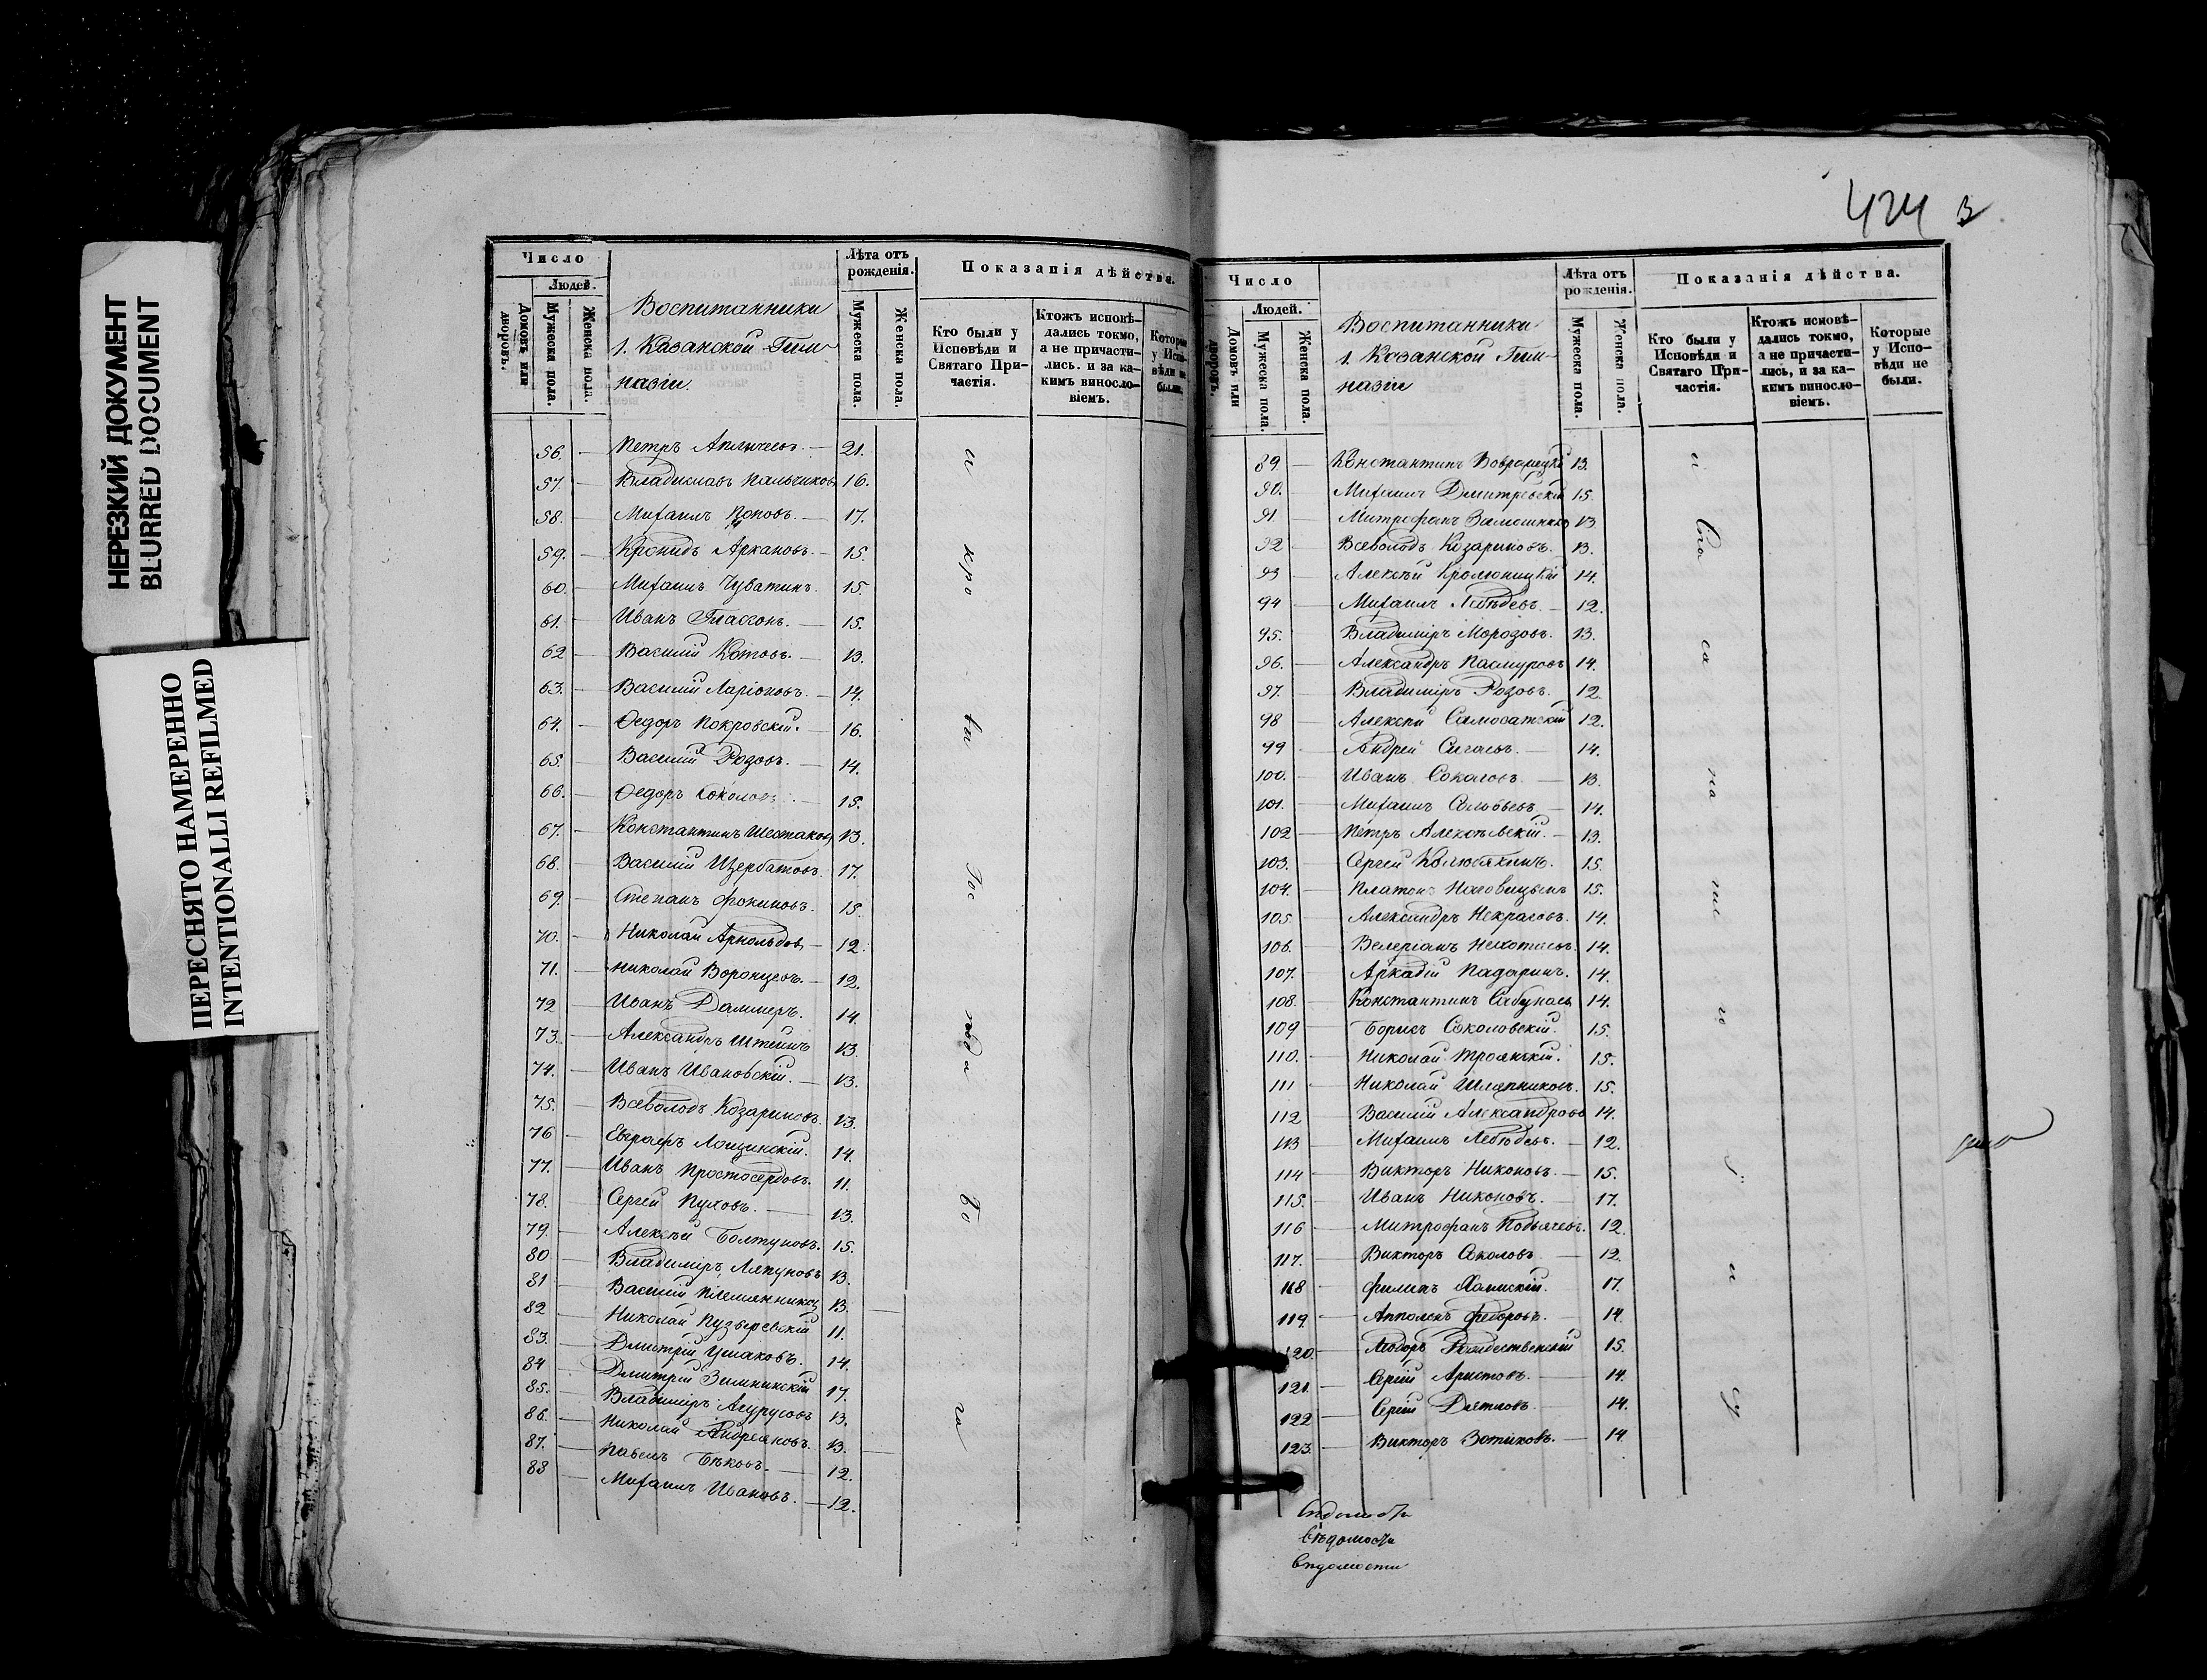 НЕРЕЗКИЙ ДОКУМЕНТ
BLURRED DOCUMENT
ПЕРЕСНЯТО НАМЕРЕННО
INTENTIONALLI REFILMED
Число
Людей.
Домовъ или дворовъ.
Мужеска пола.
Женска пола.
Воспитанники
1. Казанской Гим-
назіи.
Лѣта отъ рожденія.
Мужеска пола.
Женска пола.
Показанія дѣйства.
Кто были у Исповѣди и Святаго Причастія.
Ктожъ исповѣдались токмо, а не причастились. и за какимъ винословіемъ.
Которые у Исповѣди не были.
56. — Петръ — 21.
57. — Владиславъ Пальчиковъ 16.
58. — Михаилъ Поповъ. — 17.
59. — Кронидъ Аркановъ. — 15.
60. — Михаилъ Чуватинъ. 15.
61. — Иванъ — 15.
62 — Василій Котовъ. — 13.
63. — Василій Ларіоновъ. — 14.
64. — Ѳедоръ Покровскій. — 16.
65. — Василій Розовъ. — 14.
66. — Ѳедоръ Соколовъ. — 15.
67. — Константинъ Шестаковъ 13.
68. — Василій Щербатовъ. 17.
69. — Степанъ Фокиновъ. 15.
70. — Николай Арнольдовъ — 12.
71. — Николай Воронцовъ. — 12.
72 — Иванъ Даммеръ. 14.
73. — Александръ Штейнъ 13.
74. — Иванъ Ивановскій. — 13.
75. — Всеволодъ Козариновъ. 13.
76 — Евграфъ Лощинскій. 14.
77. — Иванъ Простосердовъ. 11.
78. — Сергей Пуховъ. — 13.
79. — Алексѣй Болтуновъ. 15.
80 — Владиміръ Ляпуновъ 13.
81 — Василій 13.
82 — Николай Пузыревскій 11.
83. — Дмитрій Ушаковъ. 14.
84 — Дмитрій Зимнинскій 17.
85. — Владиміръ 13.
86. — Николай Андреяновъ. 13.
87. — Павелъ Бѣковъ. — 12.
88 — Михаилъ Ивановъ. — 12.
424
Число
Людей.
Домовъ или дворовъ.
Мужеска пола.
Женска пола.
Воспитанники
1. Казанской Гим-
назіи
Лѣта отъ рожденія.
Мужеска пола.
Женска пола.
Показанія дѣйства.
Кто были у Исповѣди и Святаго Причастія.
Ктожъ исповѣдались токмо, а не причастились, и за какимъ винословіемъ.
Которые у Исповѣди не были.
89. — Константинъ 13.
90. — Михаилъ Дмитревскій 15.
91. — Митрофанъ 13
92 — Всеволодъ Козариновъ. 13.
93 — Алексѣй 14.
94 — Михаилъ Лебѣдевъ. — 12.
95. — Владиміръ Морозовъ. 13.
96. — Александръ Пасмуровъ 14.
97. — Владиміръ Розовъ. 12.
98 — Алексѣй Самосатскій 12.
99 — Андрей — 14.
100. — Иванъ Соколовъ. — 13.
101. — Михаилъ — 14.
102 — Петръ Алексѣевскій. — 13.
103. — Сергей Колюбякинъ. 15.
104. — Платонъ Наговицынъ 15.
105 — Александръ Некрасовъ. 14.
106. — Велеріанъ 14.
107. — Аркадій Падаринъ. 14.
108. — Константинъ 14.
109 — Борисъ Соколовскій. 15.
110. — Николай Троянскій. 15.
111 — Николай Шляпниковъ. 15.
112 — Василій Александровъ 14.
113 — Михаилъ Лебѣдевъ. — 12.
114 — Викторъ Никоновъ. — 15.
115. — Иванъ Никоновъ. — 17.
116 — Митрофанъ Подъячевъ. 12.
117. — Викторъ Соколовъ — 12.
118 — Филипъ 17.
119. — Апполонъ Федоровъ. 14.
120. — Рождественскій 15.
121. — Сергій Аристовъ. — 14.
122 — Сергій Дятловъ. 14.
123. — Викторъ Зотиковъ. — 14.
вѣдомости